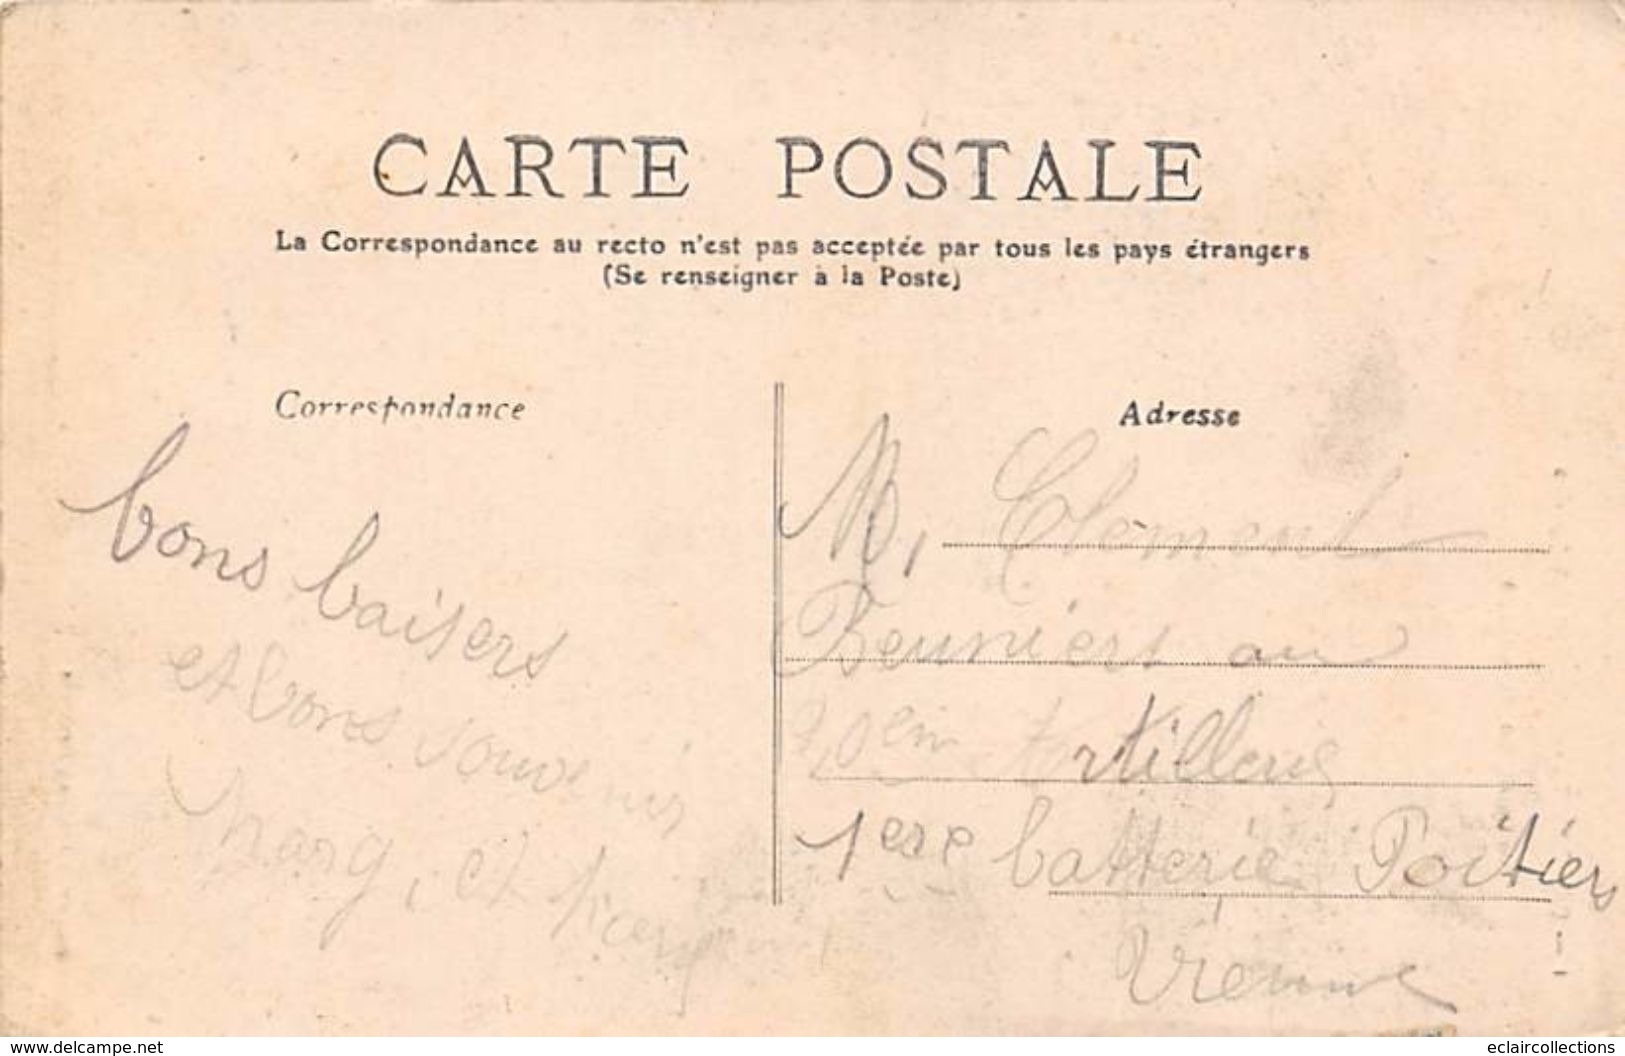 CARTE POSTALE
La Correspondance au recto n'est pas acceptée par tous les pays étrangers
(Se renseigner à la Poste)
Correspondance
bons baisers
et bons souvenir
Marg, et
Adresse
M, Clement
au
20em Artillerie
1ere batterie Poitiers
Vienne
www.delcampe.net
eclaircollections